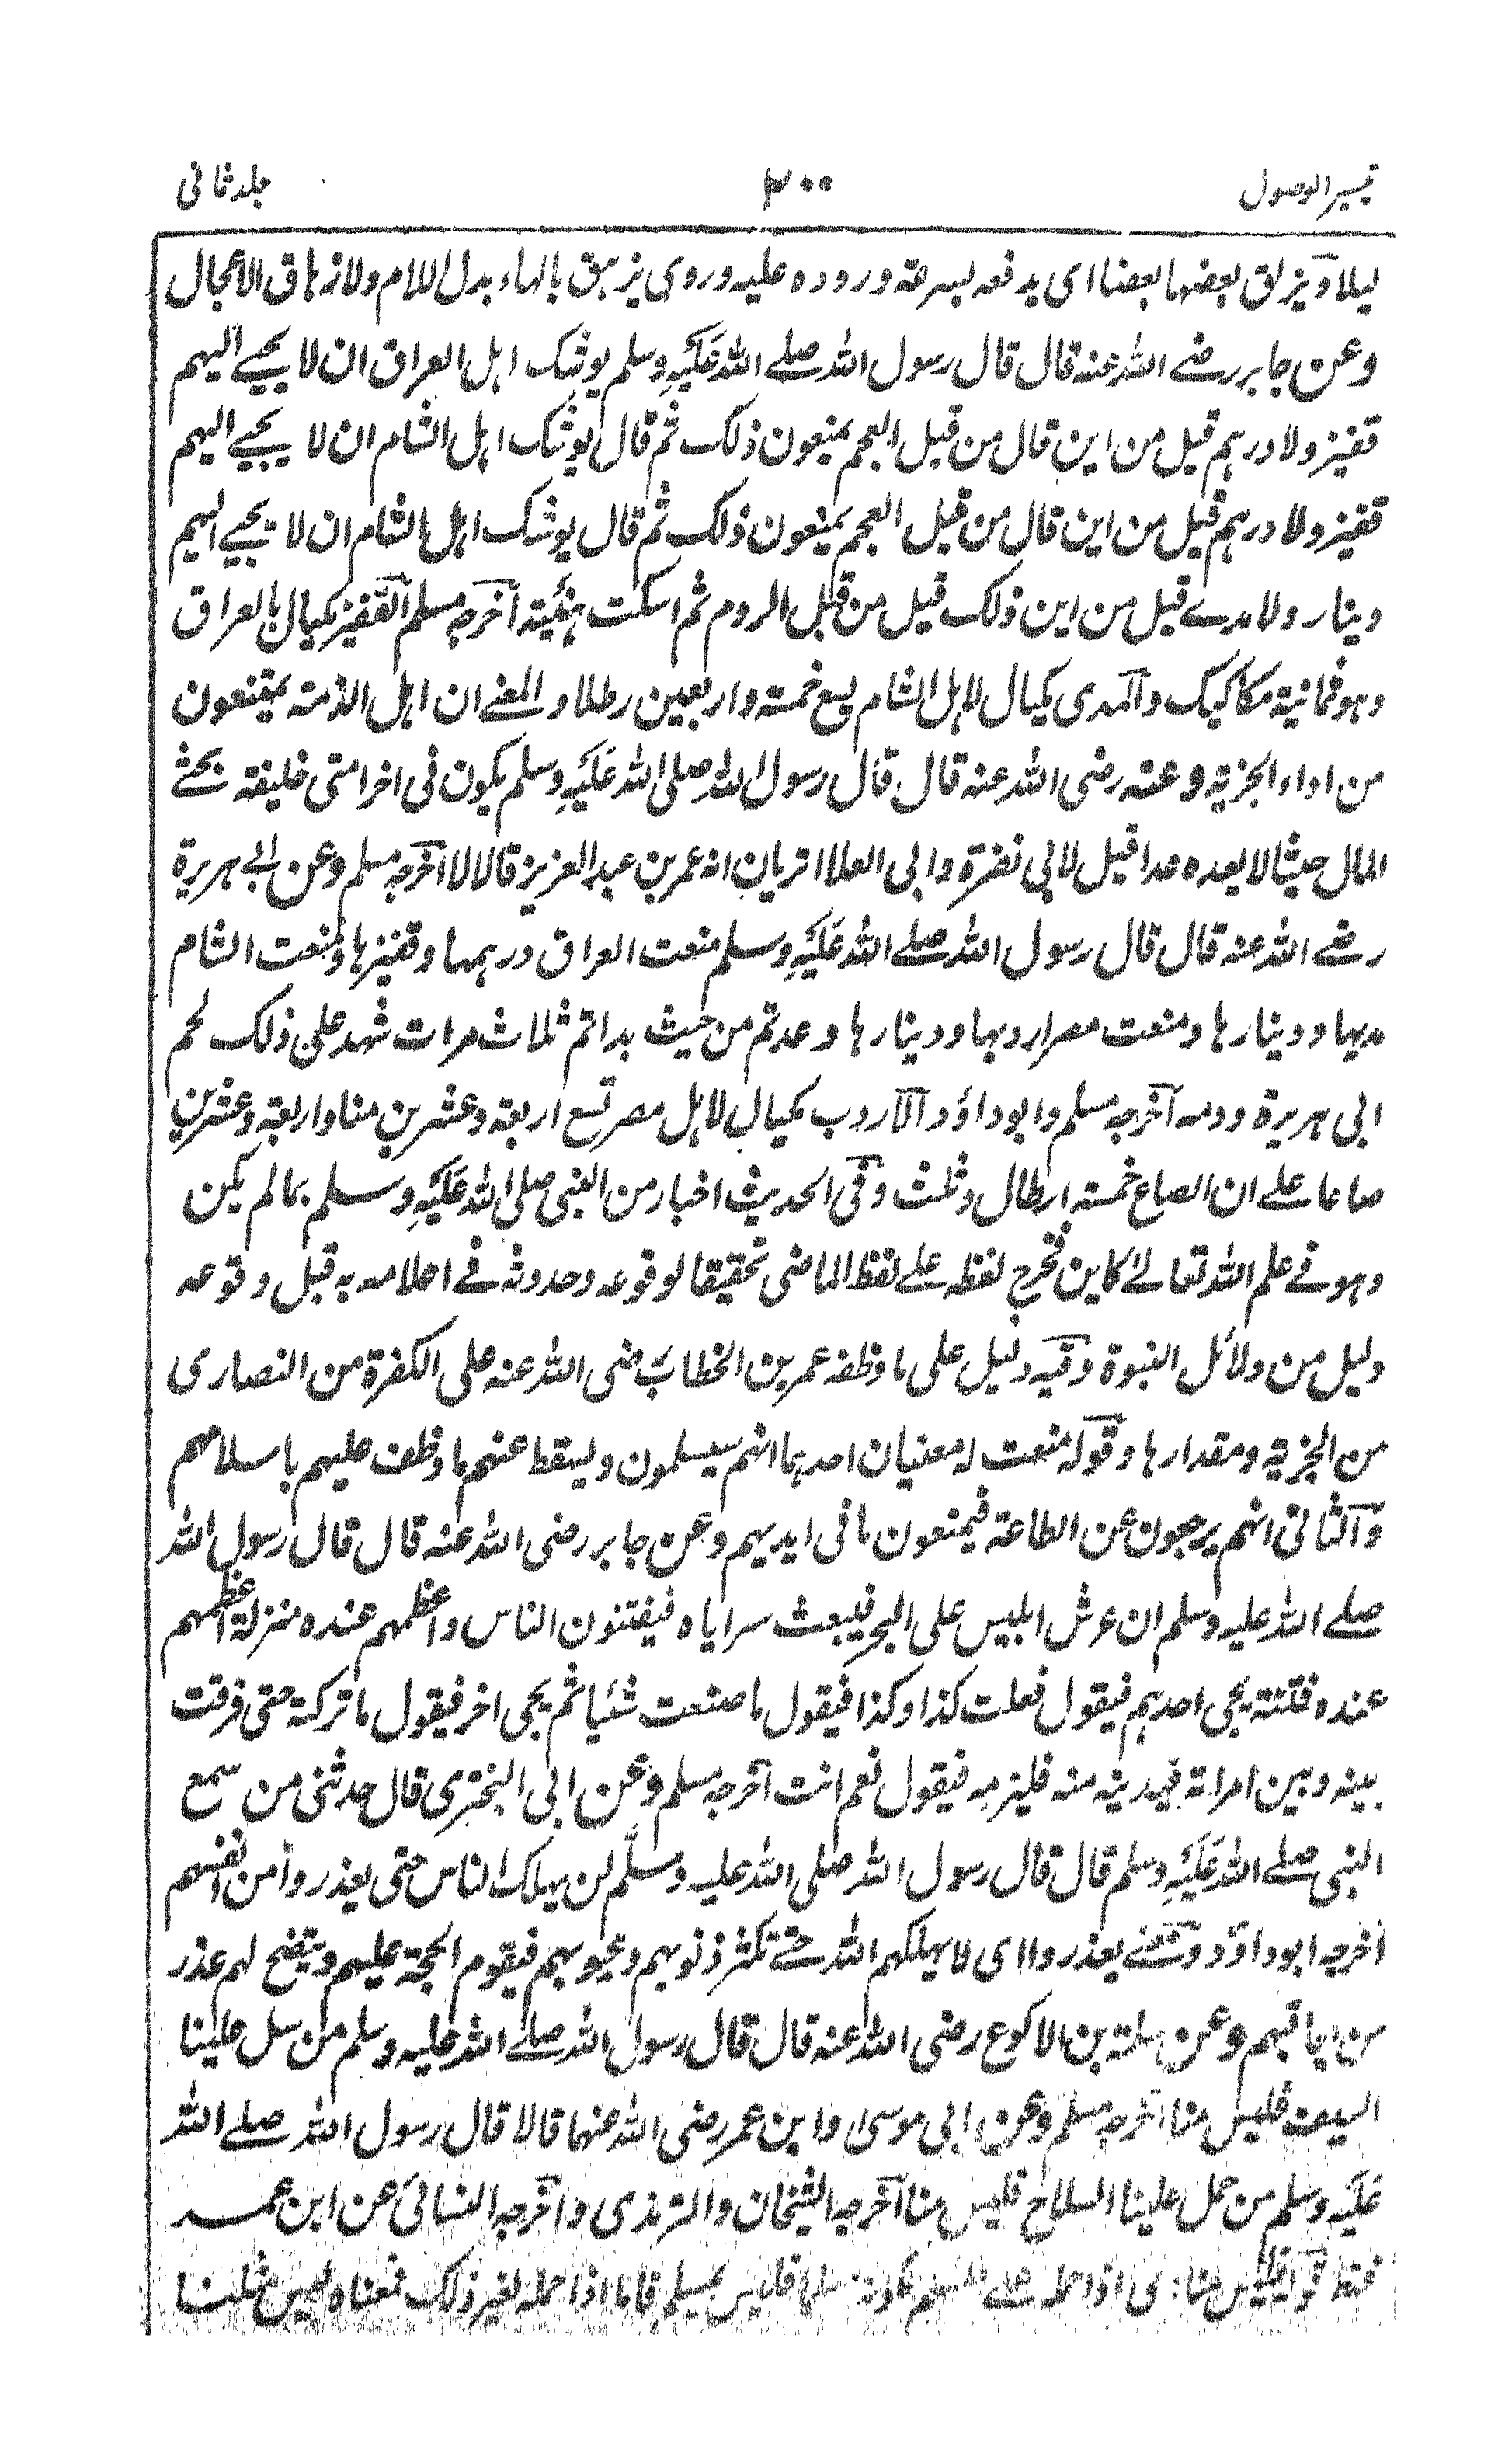 تيسير الوصول ٢٠٠ جلد ثانی
ليلا ويزلق بعضها بعضا ای يدفعه لسرعة وروده عليه وروی يزهق بالهاء بدل اللام ولازهاق الاعجال
وعن جابر رضے الله عنه قال قال رسول الله صلے الله عَلَيْهِ وسلم يوشك اهل العراق ان لا يجيے اليهم
قفيز ولا درهم قيل من اين قال من قبل العجم يمنعون ذلك ثم قال يوشك اهل الشام ان لا يجيے اليهم
قفيز ولا درهم قيل من اين قال من قبل العجم يمنعون ذلك ثم قال يوشك اهل الشام ان لا يجيے اليهم
دينار ولا مدے قيل من اين ذلك قيل من قبل الروم ثم اسكت هنيئة آخرجه مسلم القفيز مكيال بالعراق
وهو ثمانية مكاكيك وآلمدی مكيال لاهل الشام يسع خمسة واربعين رطلا والمعنے ان اهل الذمة يمتنعون
من اداء الجزية وعنه رضی الله عنه قال قال رسول الله صلی الله عَلَيْهِ وسلم يكون فی اخر امتی خليفة يحثے
المال حيثا لا يعده عدا قيل لابی نضرة وابی العلا اتريان انه عمر بن عبد العزيز قالا لا آخرجه مسلم وعن ابے هريرة
رضے الله عنه قال قال رسول الله صلے الله عَلَيْهِ وسلم منعت العراق درهمها وقفيزها ومنعت الشام
مديها ودينارها ومنعت مصر اردبها ودينارها وعدتم من حيث بداتم ثلاث مرات شهد علی ذلك لحم
ابی هريرة ودمه آخرجه مسلم وابو داؤد آلاردب مكيال لاهل مصر تسع اربعة وعشرين منا واربعة وعشرين
صاعا علے ان الصاع خمسة ارطال وثلث وفی الحديث اخبار من النبی صلی الله عَلَيْهِ وسلم بما لم يكن
وهو فے علم الله تعالےٰ كاين فخرج لفظه علے لفظ الماضی تحقيقا لوقوعه وحدوثه فے اعلامه به قبل وقوعه
دليل من دلائل النبوة وفيه دليل علی ما وظفه عمر بن الخطاب رضی الله عنه علی الكفرة من النصاری
من الجزية ومقدارها وقوله منعت له معنيان احدهما انهم سيسلمون وليسقط عنهم ما وظف عليهم باسلامهم
وآلثانی انهم يرجعون عن الطاعة فيمنعون ما فی ايديهم وعن جابر رضی الله عنه قال قال رسول الله
صلے الله عليه وسلم ان عرش ابليس علی البحر فيبعث سراياه فيفتنون الناس واعظمهم عنده منزلة اعظمهم
عنده فتنة يجی احدهم فيقول فعلت كذا وكذا فيقول ما صنعت شئيا ثم يجی اخر فيقول ما تركته حتی فرقت
بينه وبين امراته فيدينه منه فليزمه فيقول نعم انت آخرجه مسلم وعن ابی البختری قال حدثنی من سمع
النبی صلے الله عَلَيْهِ وسلم قال قال رسول الله صلی الله عليه وسلَّم لن يهلك الناس حتی يعذروا من انفسهم
اخرجه ابو داؤد ومعنے يعذروا ای لا يهلكهم الله حتے تكثر ذنوبهم وعيوبهم فيقوم الحجة عليهم ويتضح لهم عذر
من يعاقبهم وعن سلمة بن الاكوع رضی الله عنه قال قال رسول الله صلے الله عليه وسلم من سل علينا
السيف فليس منا اخرجه مسلم وعن ابی موسی وابن عمر رضی الله عنهما قالا قال رسول الله صلے الله
عَلَيْه وسلم من حمل علينا السلاح فليس منا آخرجه الشيخان والترمذی وآخرجه النسائی عن ابن عمر
فقط قوله فليس منا ای اذا حمله علے فليس بمسلم فاما اذا حمله لغير ذلك فمعناه ليس مثلنا